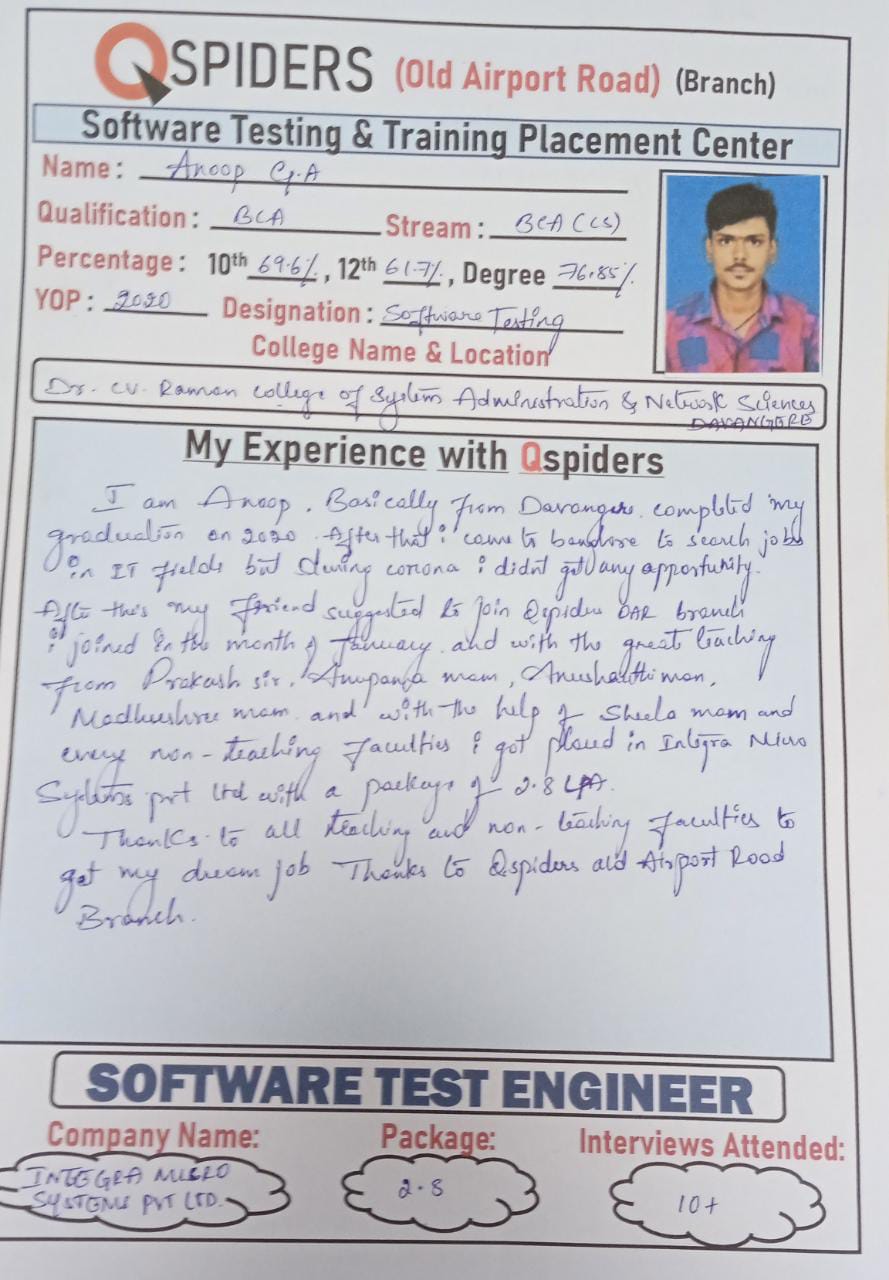 QSPIDERS (Old Airport Road) (Branch)
Software Testing & Training Placement Center
Name : Anoop G.A
Qualification : BCA Stream : BCA (CS)
Percentage : 10th 69.6%, 12th 61.7%, Degree 76.85%
YOP : 2020 Designation : Software Testing
College Name & Location
Dr. CV. Raman college of System Administration & Network Sciences
DAVANGERE
My Experience with Qspiders
I am Anoop. Basically from Davangere. completed my
graduation on 2020. After that i came to banglore to search jobs
in IT fields but during corona i didnt get any apportunity.
After this my friend suggested to join Qspiders OAR branch
i joined in the month of January and with the great teaching
from Prakash sir, Anupama mam, mam,
Madhushree mam and with the help of Sheela mam and
every non-teaching faculties i got placed in Integra Micro
Systems pvt Ltd with a package of 2.8 LPA.
Thanks to all teaching and non-teaching faculties to
get my dream job Thanks to Qspiders old Airport Road
Branch.
SOFTWARE TEST ENGINEER
Company Name: Package: Interviews Attended:
INTEGRA MICRO
SYSTEMS PVT LTD.
2.8
10+